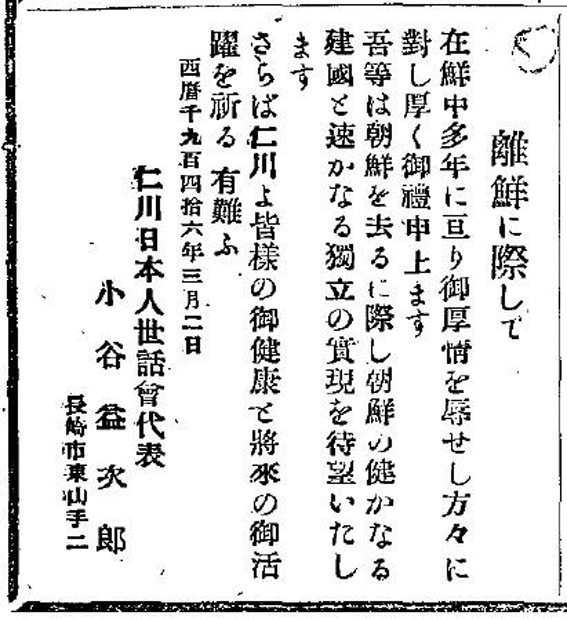 離鮮に際して
在鮮中多年に亘り御厚情を辱せし方々に
對し厚く御禮申上ます
吾等は朝鮮を去るに際し朝鮮の健かなる
建國と速かなる獨立の實現を待望いたし
ます
さらば仁川よ皆樣の御健康と將來の御活
躍を祈る 有難ふ
西曆千九百四拾六年三月二日
仁川日本人世話會代表
小谷益次郎
長崎市東山手二